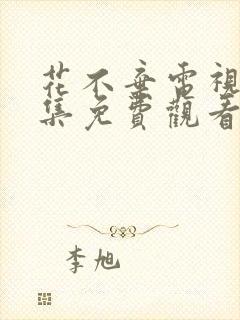 花不棄電視
集免費觀看
李旭